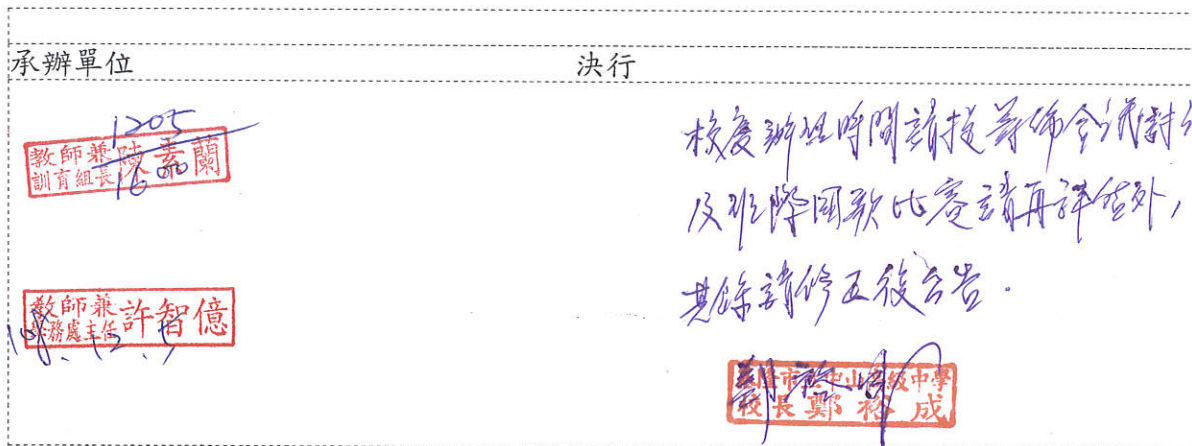 承辦單位
決行
1205
教師兼
訓育組長
陳素蘭
1600
教師兼
學務處主任
許智億
108.12.5
校慶辦理時間請提籌備會議討
及班際國歌比賽請再評估外,
其餘請修正後公告.
基隆市立中山高級中學
校長鄭裕成